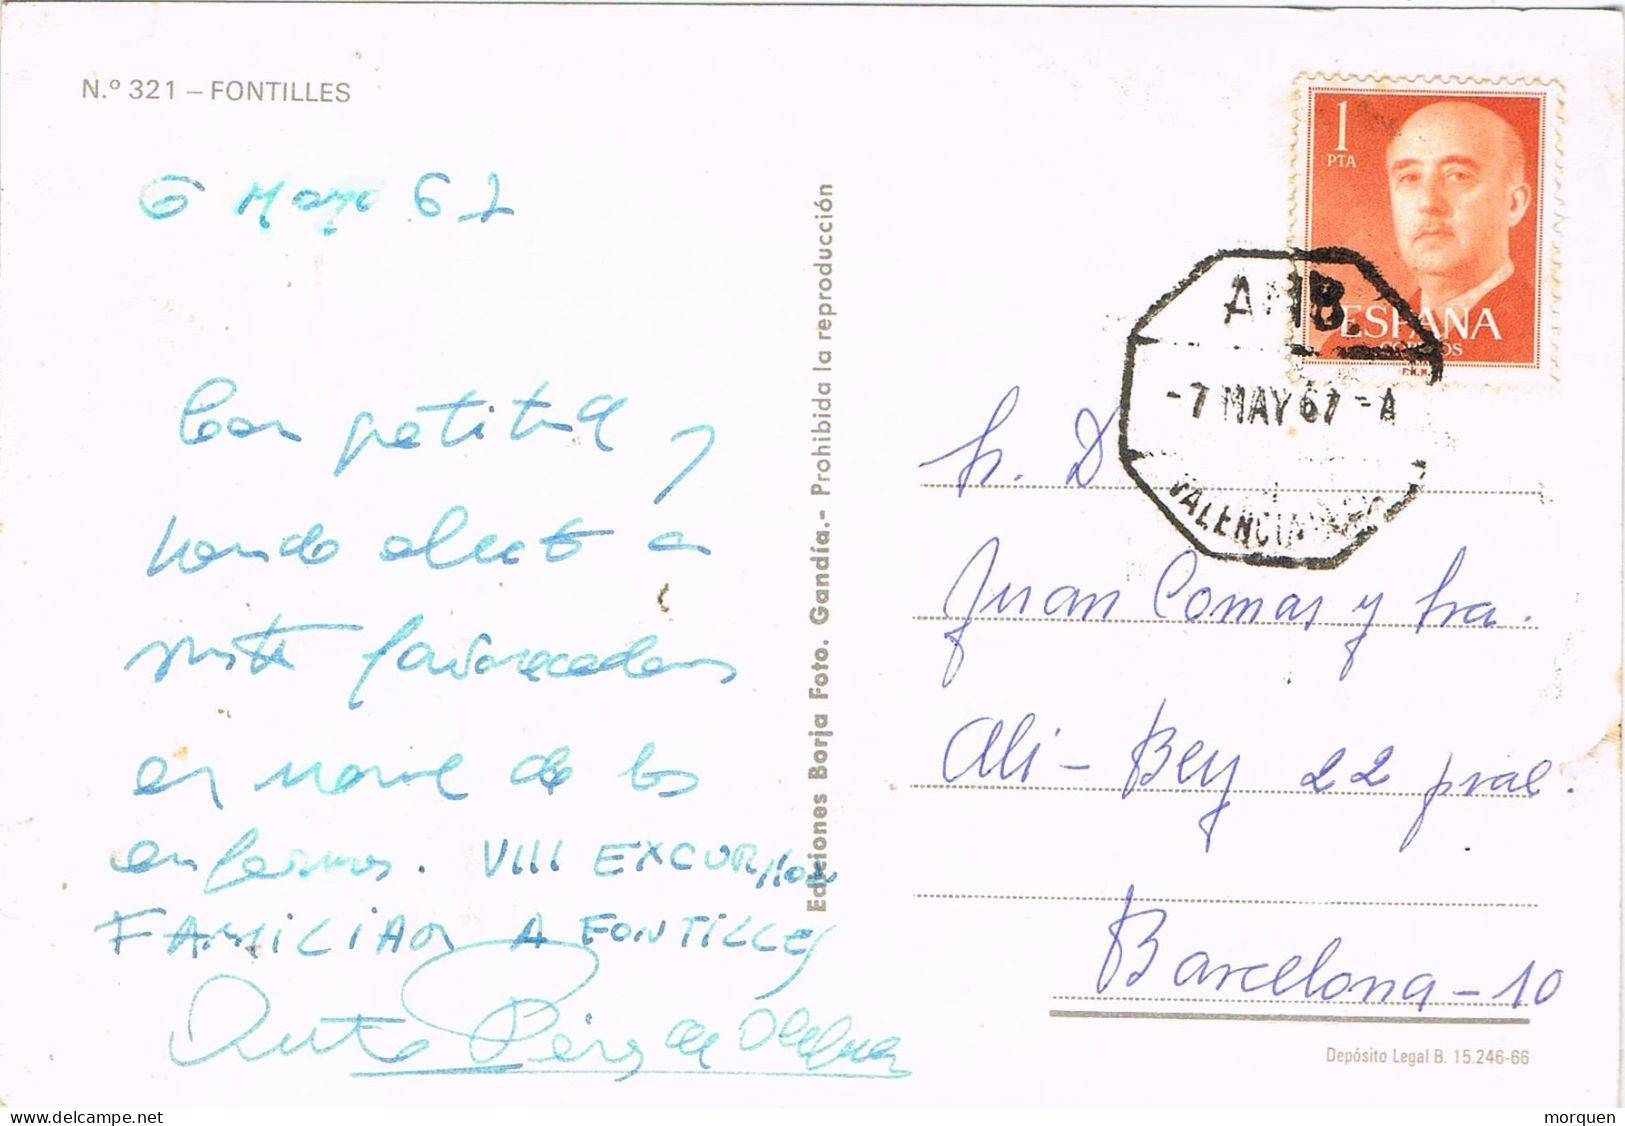 N.º 321 – FONTILLES
6 Mayo 67
Con gratitud y
hondo afecto a
favorecedores
en nombre de los
enfermos. VIII EXCURSION
FAMILIAR A FONTILLES
Pérez de
Ediciones Borja Foto. Gandía.- Prohibida la reproducción
1
PTA
ESPAÑA
CORREOS
F.N.M.
AMB.
-7 MAY 67 -A
Sr. D
Juan Comas y Sra.
Ali-Bey 22 pral.
Barcelona-10
Depósito Legal B. 15.246-66
morquen